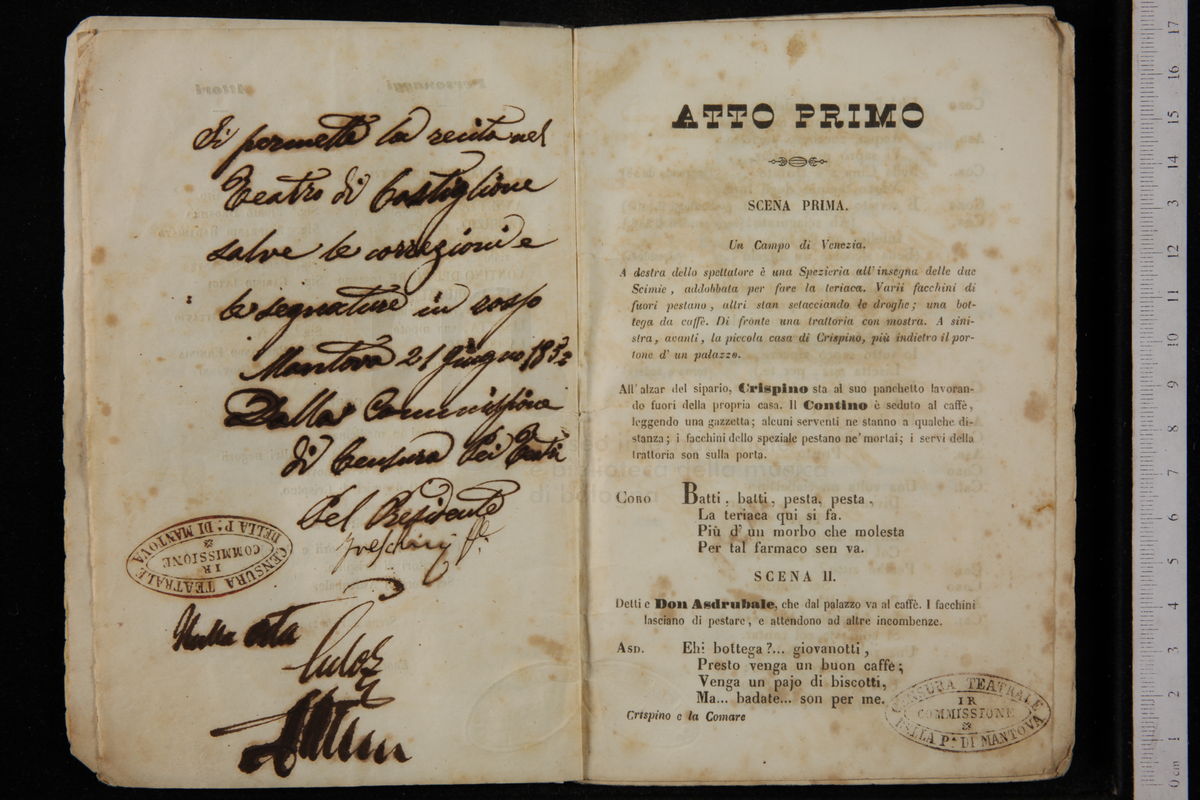 Si permette la recita nel
Teatro di Castiglione
salve le correzioni e
le segnature in rosso
Mantova 21 Giugno 1852
Dalla Commissione
di Censura dei Teatri
Pel Presidente
CENSURA TEATRALE
IR
COMMISSIONE
DELLA P.A DI MANTOVA
Nulla osta
ATTO PRIMO
SCENA PRIMA.
Un Campo di Venezia.
A destra dello spettatore è una Spezieria all' insegna delle due
Scimie, addobbata per fare la teriaca. Varii facchini di
fuori pestano, altri stan setacciando le droghe; una bot-
tega da caffè. Di fronte una trattoria con mostra. A sini-
stra, avanti, la piccola casa di Crispino, più indietro il por-
tone d' un palazzo.
All' alzar del sipario, Crispino sta al suo panchetto lavoran-
do fuori della propria casa. Il Contino è seduto al caffè,
leggendo una gazzetta; alcuni serventi ne stanno a qualche di-
stanza; i facchini dello speziale pestano ne' mortai; i servi della
trattoria son sulla porta.
CORO Batti, batti, pesta, pesta,
La teriaca qui si fa.
Più d' un morbo che molesta
Per tal farmaco sen va.
SCENA II.
Detti e Don Asdrubale, che dal palazzo va al caffè. I facchini
lasciano di pestare, e attendono ad altre incombenze.
ASD. Ehi bottega?... giovanotti,
Presto venga un buon caffè;
Venga un pajo di biscotti,
Ma... badate... son per me.
Crispino e la Comare
CENSURA TEATRALE
IR
COMMISSIONE
DELLA P.A DI MANTOVA
della musica
di bologna
0 cm 1 2 3 4 5 6 7 8 9 10 11 12 13 14 15 16 17